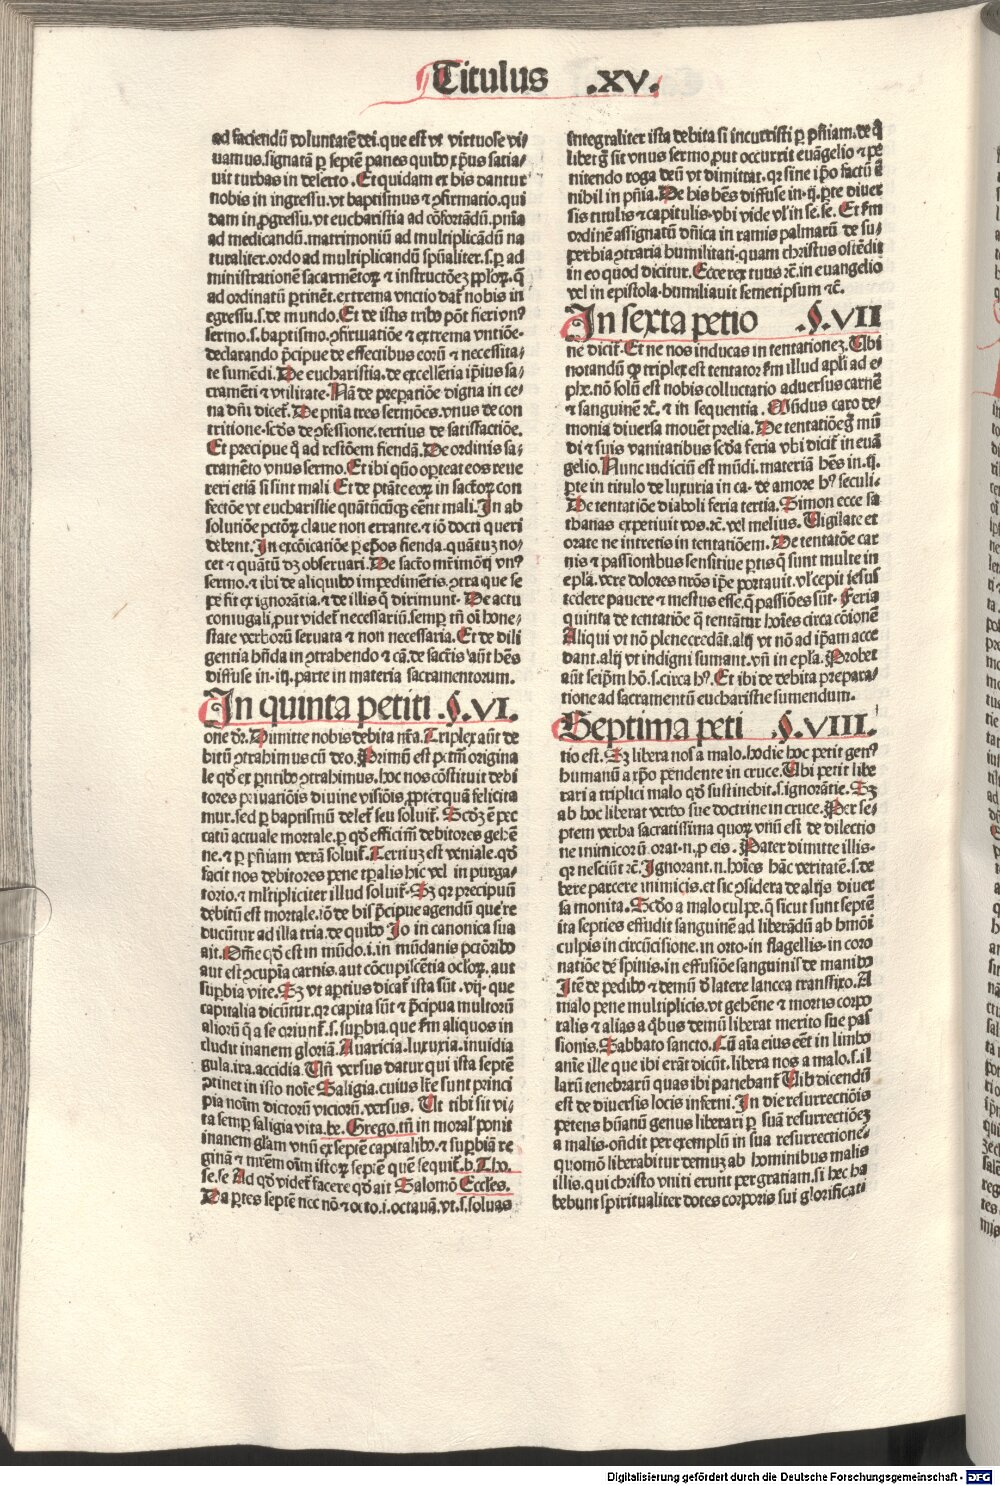 Titulus .XV.
ad faciendū voluntatē dei. que est vt virtuose vi⸗
uamus. signatā ꝑ septē panes quibꝰ xp̄us satia⸗
uit turbas in deserto. Et quidam ex his dantur
nobis in ingressu. vt baptismus ⁊ ꝯfirmatio. qui
dam in ꝓgressu. vt eucharistia ad cōfortādū. pnīa
ad medicandū. matrimoniū ad multiplicādū na
turaliter. ordo ad multiplicandū spūaliter. s. ꝑ ad
ministrationē sacramētoꝝ ⁊ instructōeꝫ ppłoꝝ. q̄
ad ordinatū ꝑtinēt. extrema vnctio dat̄ nobis in
egressu. s. de mundo. Et de istis tribꝰ pōt fieri vnꝰ
sermo. s. baptismo. ꝯfirmatiōe ⁊ extrema vntiōe.
declarando p̄cipue de effectibus eorū ⁊ necessita⸗
te sumēdi. De eucharistia. de excellētia ip̄ius sa⸗
cramēti ⁊ vtilitate. Nā de preparatiōe digna in ce⸗
na dn̄i dicet̄. De pnīa tres sermōes. vnus de con
tritione. scd̄s de ꝯfessione. tertius de satisfactiōe.
Et precipue q̄ ad restōem fiendā. De ordinis sa⸗
cramēto vnus sermo. Et ibi qūo oꝑteat eos reue
reri etiā si sint mali Et de ptāte eoꝝ in sacr̄oꝝ con
fectōe vt eucharistie quātūcūqꝫ eēnt mali. In ab
solutiōe pctōꝝ claue non errante. ⁊ iō docti queri
debent. In excōicatiōe ꝑ ep̄os fienda. quātuꝫ no⸗
cet ⁊ quātū dꝫ obseruari. De sacr̄o mr̄imōij vnꝰ
sermo. ⁊ ibi de aliquibꝰ impedimētis. ꝯtra que se
pe fit ex ignorātia. ⁊ de illis q̄ dirimunt. De actu
coniugali. put videt̄ necessariū. semp̱ tn̄ oī hone⸗
state verborū seruata ⁊ non necessaria. Et de dili
gentia hn̄da in ꝯtrahendo ⁊ cā. de sacr̄is aūt hēs
diffuse in. iij. parte in materia sacramentorum.
In quinta petiti .§. VI.
one d̄r. Dimitte nobis debita nr̄a. Triplex aūt de
bitū ꝯtrahimus cū deo. Primū est pctm̄ origina
le qd̄ ex ꝑentibꝰ ꝯtrahimus. hoc nos cōstituit debi
tores priuatiōis diuine visiōis. ꝓpter quā felicita
mur. sed ꝑ baptismū delet̄ seu soluit̄. Scd̄ꝫ ē pec
catū actuale mortale. ꝑ qd̄ efficim̄ debitores gehē
ne. ⁊ ꝑ pn̄iam verā soluit̄. Terniuꝫ est veniale. qd̄
facit nos debitores pene tꝑalis hic vel in purga⸗
torio. ⁊ mltipliciter illud soluit̄. Sꝫ qꝛ precipuū
debitū est mortale. iō de his p̄cipue agendū que re
ducūtur ad illa tria. de quibꝰ Jo in canonica sua
ait. Om̄e qd̄ est in mūdo. i. in mūdanis pctōribꝰ
aut est ꝯcupīa carnis. aut cōcupiscētia oclōꝝ. aut
suꝑbia vite. Sꝫ vt aptius dicat̄ ista sūt. vij. que
capitalia dicūtur. qꝛ capita sūt ⁊ p̄cipua multorū
aliorū q̄ a se oriunt̄. s. suꝑbia. que fm aliquos in
cludit inanem gloriā. Auaricia. luxuria. inuidia
gula. ira. accidia. Un̄ versus datur qui ista septē
ꝯtinet in isto noīe Saligia. cuius lr̄e sunt princi
pia noīm dictorū viciorū. versus. Ut tibi sit vi⸗
ta semp̱ saligia vita. be. Grego. tn̄ in moral̓ ponit
inanem głam vnū ex septē capitalibꝰ. ⁊ suꝑbiā re
ginā ⁊ mr̄em oīm istoꝝ septē quē sequit̄. b. Tho.
se. se Ad qd̄ videt̄ facere qd̄ ait Salomō Eccles.
Da ꝑtes septē nec nō ⁊ octo. i. octauā. vt. s. soluas
integraliter ista debita si incurristi ꝑ pn̄iam. de q̄
liberꝫ sit vnus sermo. put occurrit euāgelio ⁊ pe
nitendo roga deū vt dimittat. qꝛ sine ip̄o factū ē
nihil in pn̄ia. De his hēs diffuse in. ij. ꝑte diuer
sis titulis ⁊ capitulis. vbi vide vl̓ in se. se. Et fm
ordinē assignatū dn̄ica in ramis palmarū de su⸗
perbia ꝯtraria humilitati. quam christus ostēdit
in eo quod dicitur. Ecce rex tuus ⁊c̄. in euangelio
vel in epistola. humiliauit semetipsum ⁊c̄.
In sexta petio .§. VII
ne dicit̄. Et ne nos inducas in tentationeꝫ. Ubi
notandū ꝙ triplex est tentatoꝛ fm illud apl̄i ad e⸗
phe. nō solū est nobis colluctatio aduersus carnē
⁊ sanguinē ⁊c̄. ⁊ in sequentia. Mūdus caro de⸗
monia diuersa mouēt prelia. De tentatiōe gͦ mū
di ⁊ suis vanitatibus scd̄a feria vbi dicit̄ in euā
gelio. Nunc iudiciū est mūdi. materiā hēs in. ij.
ꝑte in titulo de luxuria in ca. de amore hꝰ seculi⸗
De tentatiōe diaboli feria tertia. Simon ecce sa
thanas expetiuit vos. ⁊c̄. vel melius. Uigilate et
orate ne intretis in tentatiōem. De tentatōe car
nis ⁊ passionibus sensitiue ꝑtis q̄ sunt multe in
epl̄a. vere dolores nr̄os ip̄e portauit. vl̓ cepit iesus
tedere pauere ⁊ mestus esse. q̄ passiōes sūt. Feria
quinta de tentatiōe q̄ tentātur hoīes circa cōionē
Aliqui vt nō plene credāt. alij vt nō ad ip̄am acce
dant. alij vt indigni sumant. vn̄ in epl̄a. Probet
aūt seip̄m hō. s. circa hꝰ. Et ibi de debita prepara⸗
tione ad sacramentū eucharistie sumendum.
Septima peti .§. VIII.
tio est. Sꝫ libera nos a malo. hodie hoc petit genꝰ
humanū a xp̄o pendente in cruce. Ubi petit libe
rari a triplici malo qd̄ sustinebit. s. ignorātie. Sꝫ
ab hoc liberat verbo sue doctrine in cruce. Per se⸗
ptem verba sacratissima quoꝝ vnū est de dilectio
ne inimicorū. orat. n. ꝓ eis. Pater dimitte illis.
qꝛ nesciūt ⁊c̄. Ignorant. n. hoīes hāc veritatē. s. de
bere parcere inimicis. et sic ꝯsidera de alijs diuer
sa monita. Scd̄o a malo culpe. q̄ sicut sunt septē
ita septies effudit sanguinē ad liberādū ab hmōi
culpis in circūcisione. in orto. in flagellis. in coro
natiōe de spinis. in effusiōe sanguinis de manibꝰ
Itē de pedibꝰ ⁊ demū d̄ latere lancea transfixo. A
malo pene multiplicis. vt gehēne ⁊ mortis corpo
ralis ⁊ alias a q̄bus demū liberat merito sue pas
sionis. Sabbato sancto. Cū aīa eius eēt in limbo
aīe ille que ibi erāt dicūt. libera nos a malo. s. il
larū tenebrarū quas ibi patiebant̄ Uib dicendū
est de diuersis locis inferni. In die resurrectiōis
petens hūanū genus liberari ꝑ suā resurrectiōeꝫ
a malis. on̄dit per exemplū in sua resurrectione.
quomō liberabitur demuꝫ ab hominibus malis
illis. qui christo vniti erunt per gratiam. si hec ha
bebunt spiritualiter dotes corporis sui glorificati
Digitalisierung gefördert durch die Deutsche Forschungsgemeinschaft - DFG